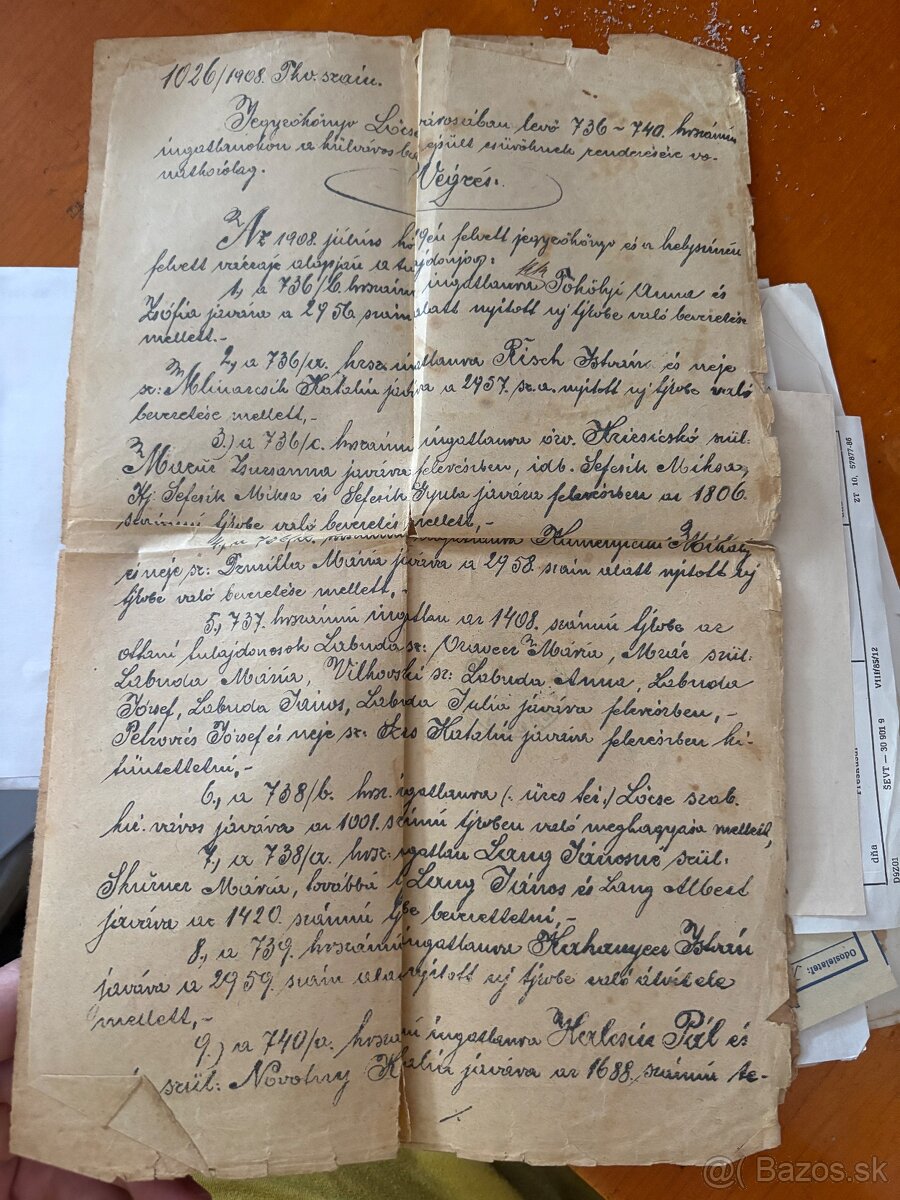 1026/1908. Tkv. szám.
Jegyzőkönyv Lőcse városában levő 736-740. hrszámú
ingatlanokon a külváros be épült csűröknek rendezésére vo-
natkozólag.
Végzés.
Az 1908. július hó 9én felvett jegyzőkönyv és a helyszínén
felvett vázrajz alapján a tulajdonjog:
1, a 736/b. hrszámú ingatlanra Tököly Anna és
Zsófia javára a 2956 szám alatt nyitott új tjkvbe való bevezetése
mellett.-
2, a 736/a. hrsz. ingatlanra Risch István és neje
sz: Mlinarcsik Katalin javára a 2957. sz. a. nyitott új tjkvbe való
bevezetése mellett,-
3.) a 736/c. hrszámú ingatlanra özv. szül:
Zsuzsanna javára felerészben, idb. Sefcsik Miksa,
Ifj: Sefcsik Miksa és Sefcsik Gyula javára felerészben az 1806.
számú tjkvbe való bevezetés mellett,-
ingatlanra Mihály
és neje sz: Mária javára a 2958. szám alatt nyitott új
tjkvbe való bevezetése mellett,-
5., 737. hrszámú ingatlan az 1408. számú tjkvbe az
ottani tulajdonosok Labuda sz: Mária, szül:
Labuda Mária, Vilkovski sz: Labuda Anna, Labuda
József, Labuda János, Labuda Julia javára felerészben,-
Petrovis József és neje sz: Katalin javára felerészben ki-
tüntettetni,-
6., a 738/b. hrsz. ingatlanra (: üres tér :) Lőcse szab.
kir. város javára az 1001. számú tjkvben való meghagyása mellett,
7., a 738/a. hrsz: ingatlan Lang Jánosné szül:
Mária, továbbá Lang János és Lang Albert
javára az 1420. számú tjkvbe bevezettetni,-
8., a 739. hrszámú ingatlanra István
javára a 2959. szám alatt nyitott új tjkvbe való átvitele
mellett,-
9.) a 740/a. hrszámú ingatlanra Pál és
szül: Novotny Katalin javára az 1688. számú te-
./.
ZT 10, 57877-86
VIII/85/12
ŠEVT — 30 981 9
dňa
D9Z01
Odosielateľ:
@( Bazos.sk